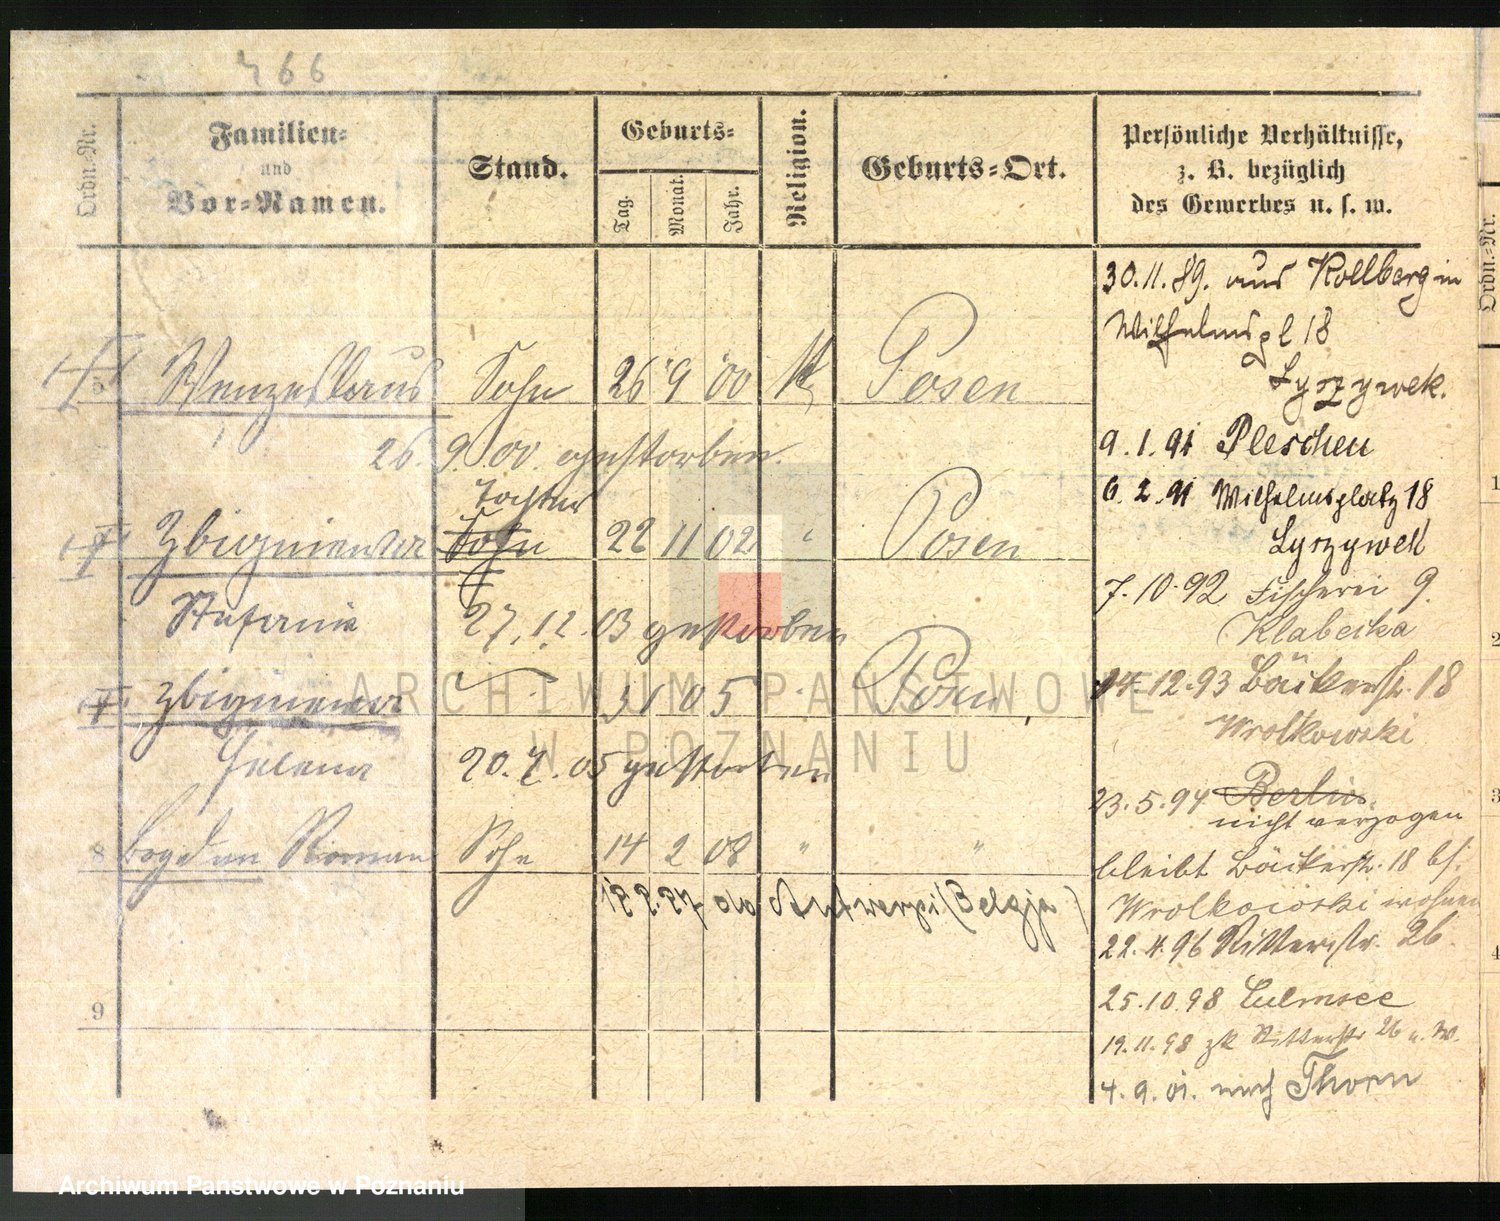 466
Ordn.-Nr.
Familien-
und
Vor-Namen.
Stand.
Geburts-
Tag.
Monat.
Jahr.
Religion.
Geburts-Ort.
Persönliche Verhältnisse,
z. B. bezüglich
des Gewerbes u. s. w.
Wenzeslaus Sohn 26 9 00 K Posen
26. 9. 00. gestorben.
Tochter
Zbigniewa Sohn 22 11 02 " Posen
Stefanie 27.12.03 gestorben
Zbigniewa 3 1 05 Posen
Helena 20.7.05 gestorben
8 Bogdan Roman Sohn 14 2 08 " "
18.8.27 do Antwerpji (Belgja)
9
30.11.89. aus Kollberg in
Wilhelmspl 18
Lyszywek.
9.1.91 Pleschen
6.2.91 Wilhelmsplatz 18
Lyszywek
7.10.92 Fischerei 9.
Klabecka
14.12.93 Bäckerstr. 18
Wrolkowski
23.5.94 Berlin
nicht verzogen
bleibt Bäckerstr. 18 bei
Wrolkowski wohnen
22.4.96 Ritterstr. 26.
25.10.98 Culmsee
19.11.98 zk Ritterstr 26 u. W.
4.9.01. nach Thorn
Ordn.-Nr.
1
2
3
4
ARCHIWUM PAŃSTWOWE
W POZNANIU
Archiwum Państwowe w Poznaniu